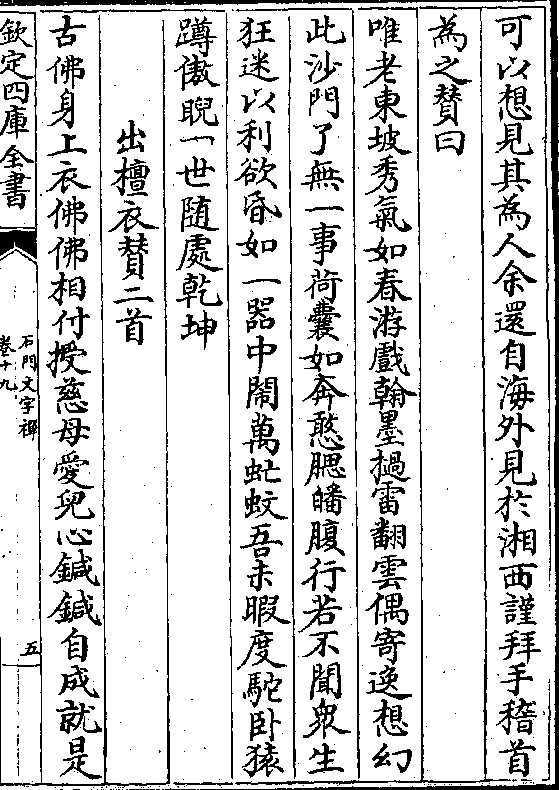 可以想見其為人余還自海外見於湘西謹拜手稽首
為之賛曰
唯老東坡秀氣如春游戲翰墨撾雷翻雲偶寄逸想幻
此沙門了無一事荷囊如奔憨腮皤腹行若不聞衆生
狂迷以利欲昏如一器中鬧萬虻蚊吾未暇度駝卧猿
蹲傲睨一世随處乾坤
出檀衣賛二首
古佛身上衣佛佛相付授慈母愛兒心鍼鍼自成就是
欽定四庫全書
石門文字禪
卷十九
五